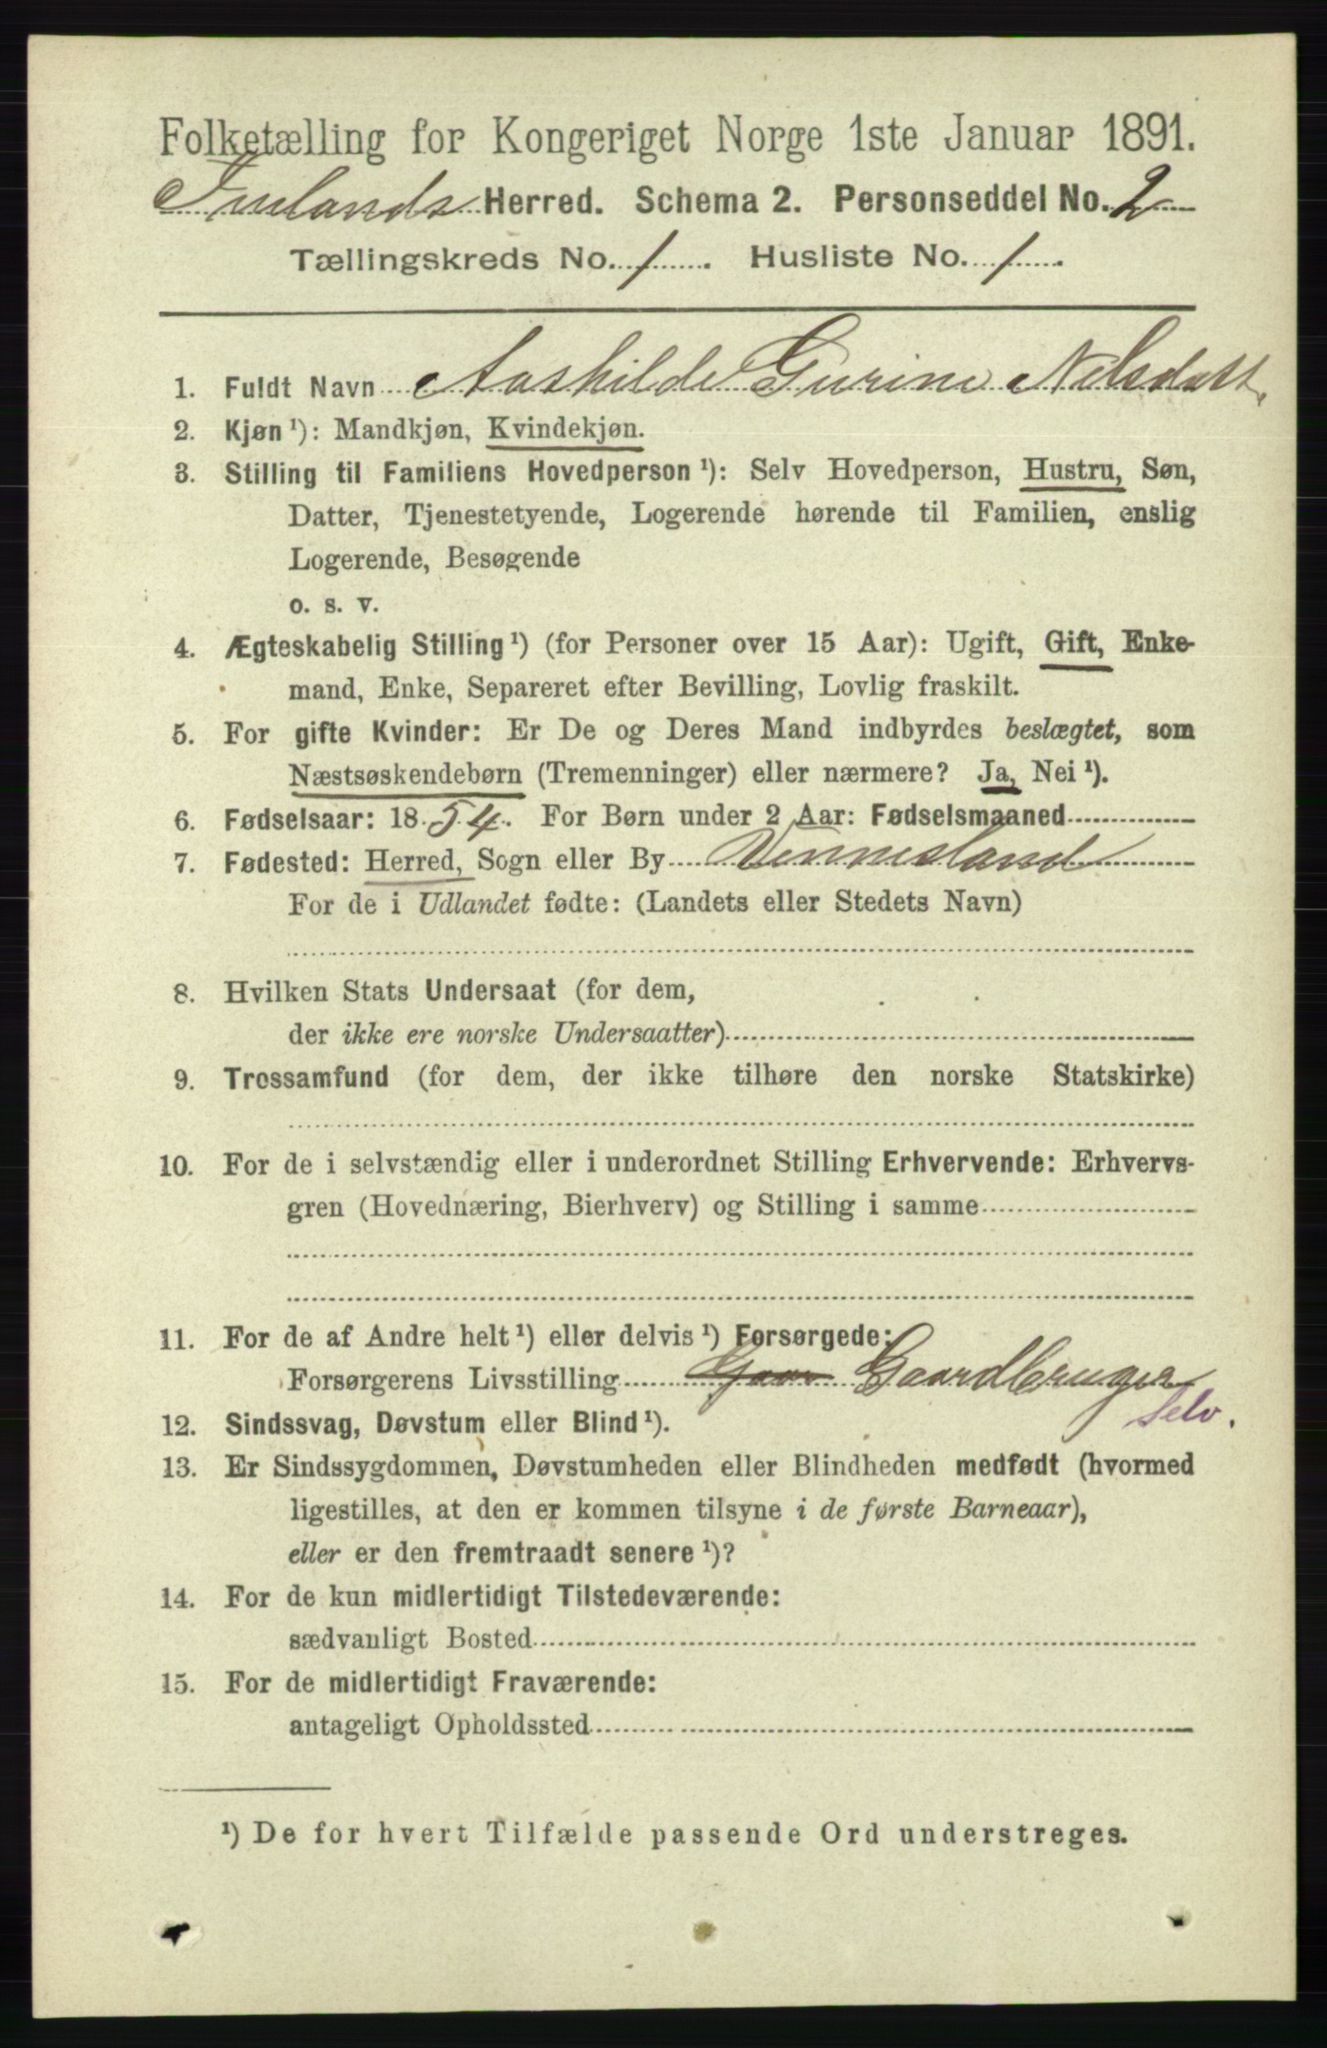 Folketælling for Kongeriget Norge 1ste Januar 1891.
Iveland Herred. Schema 2. Personseddel No. 2
Tællingskreds No. 1. Husliste No. 1.
1. Fuldt Navn Aashilde Gurine Nilsdatt.
2. Kjøn ¹): Mandkjøn, Kvindekjøn.
3. Stilling til Familiens Hovedperson ¹): Selv Hovedperson, Hustru, Søn,
Datter, Tjenestetyende, Logerende hørende til Familien, enslig
Logerende, Besøgende
o. s. v.
4. Ægteskabelig Stilling ¹) (for Personer over 15 Aar): Ugift, Gift, Enke-
mand, Enke, Separeret efter Bevilling, Lovlig fraskilt.
5. For gifte Kvinder: Er De og Deres Mand indbyrdes beslægtet, som
Næstsøskendebørn (Tremenninger) eller nærmere? Ja, Nei ¹).
6. Fødselsaar: 1854. For Børn under 2 Aar: Fødselsmaaned
7. Fødested: Herred, Sogn eller By Vennesland
For de i Udlandet fødte: (Landets eller Stedets Navn)
8. Hvilken Stats Undersaat (for dem,
der ikke ere norske Undersaatter)
9. Trossamfund (for dem, der ikke tilhøre den norske Statskirke)
10. For de i selvstændig eller i underordnet Stilling Erhvervende: Erhvervs-
gren (Hovednæring, Bierhverv) og Stilling i samme
11. For de af Andre helt ¹) eller delvis ¹) Forsørgede:
Forsørgerens Livsstilling Gaar Gaardbruger
Selv.
12. Sindssvag, Døvstum eller Blind ¹).
13. Er Sindssygdommen, Døvstumheden eller Blindheden medfødt (hvormed
ligestilles, at den er kommen tilsyne i de første Barneaar),
eller er den fremtraadt senere ¹)?
14. For de kun midlertidigt Tilstedeværende:
sædvanligt Bosted
15. For de midlertidigt Fraværende:
antageligt Opholdssted
¹) De for hvert Tilfælde passende Ord understreges.